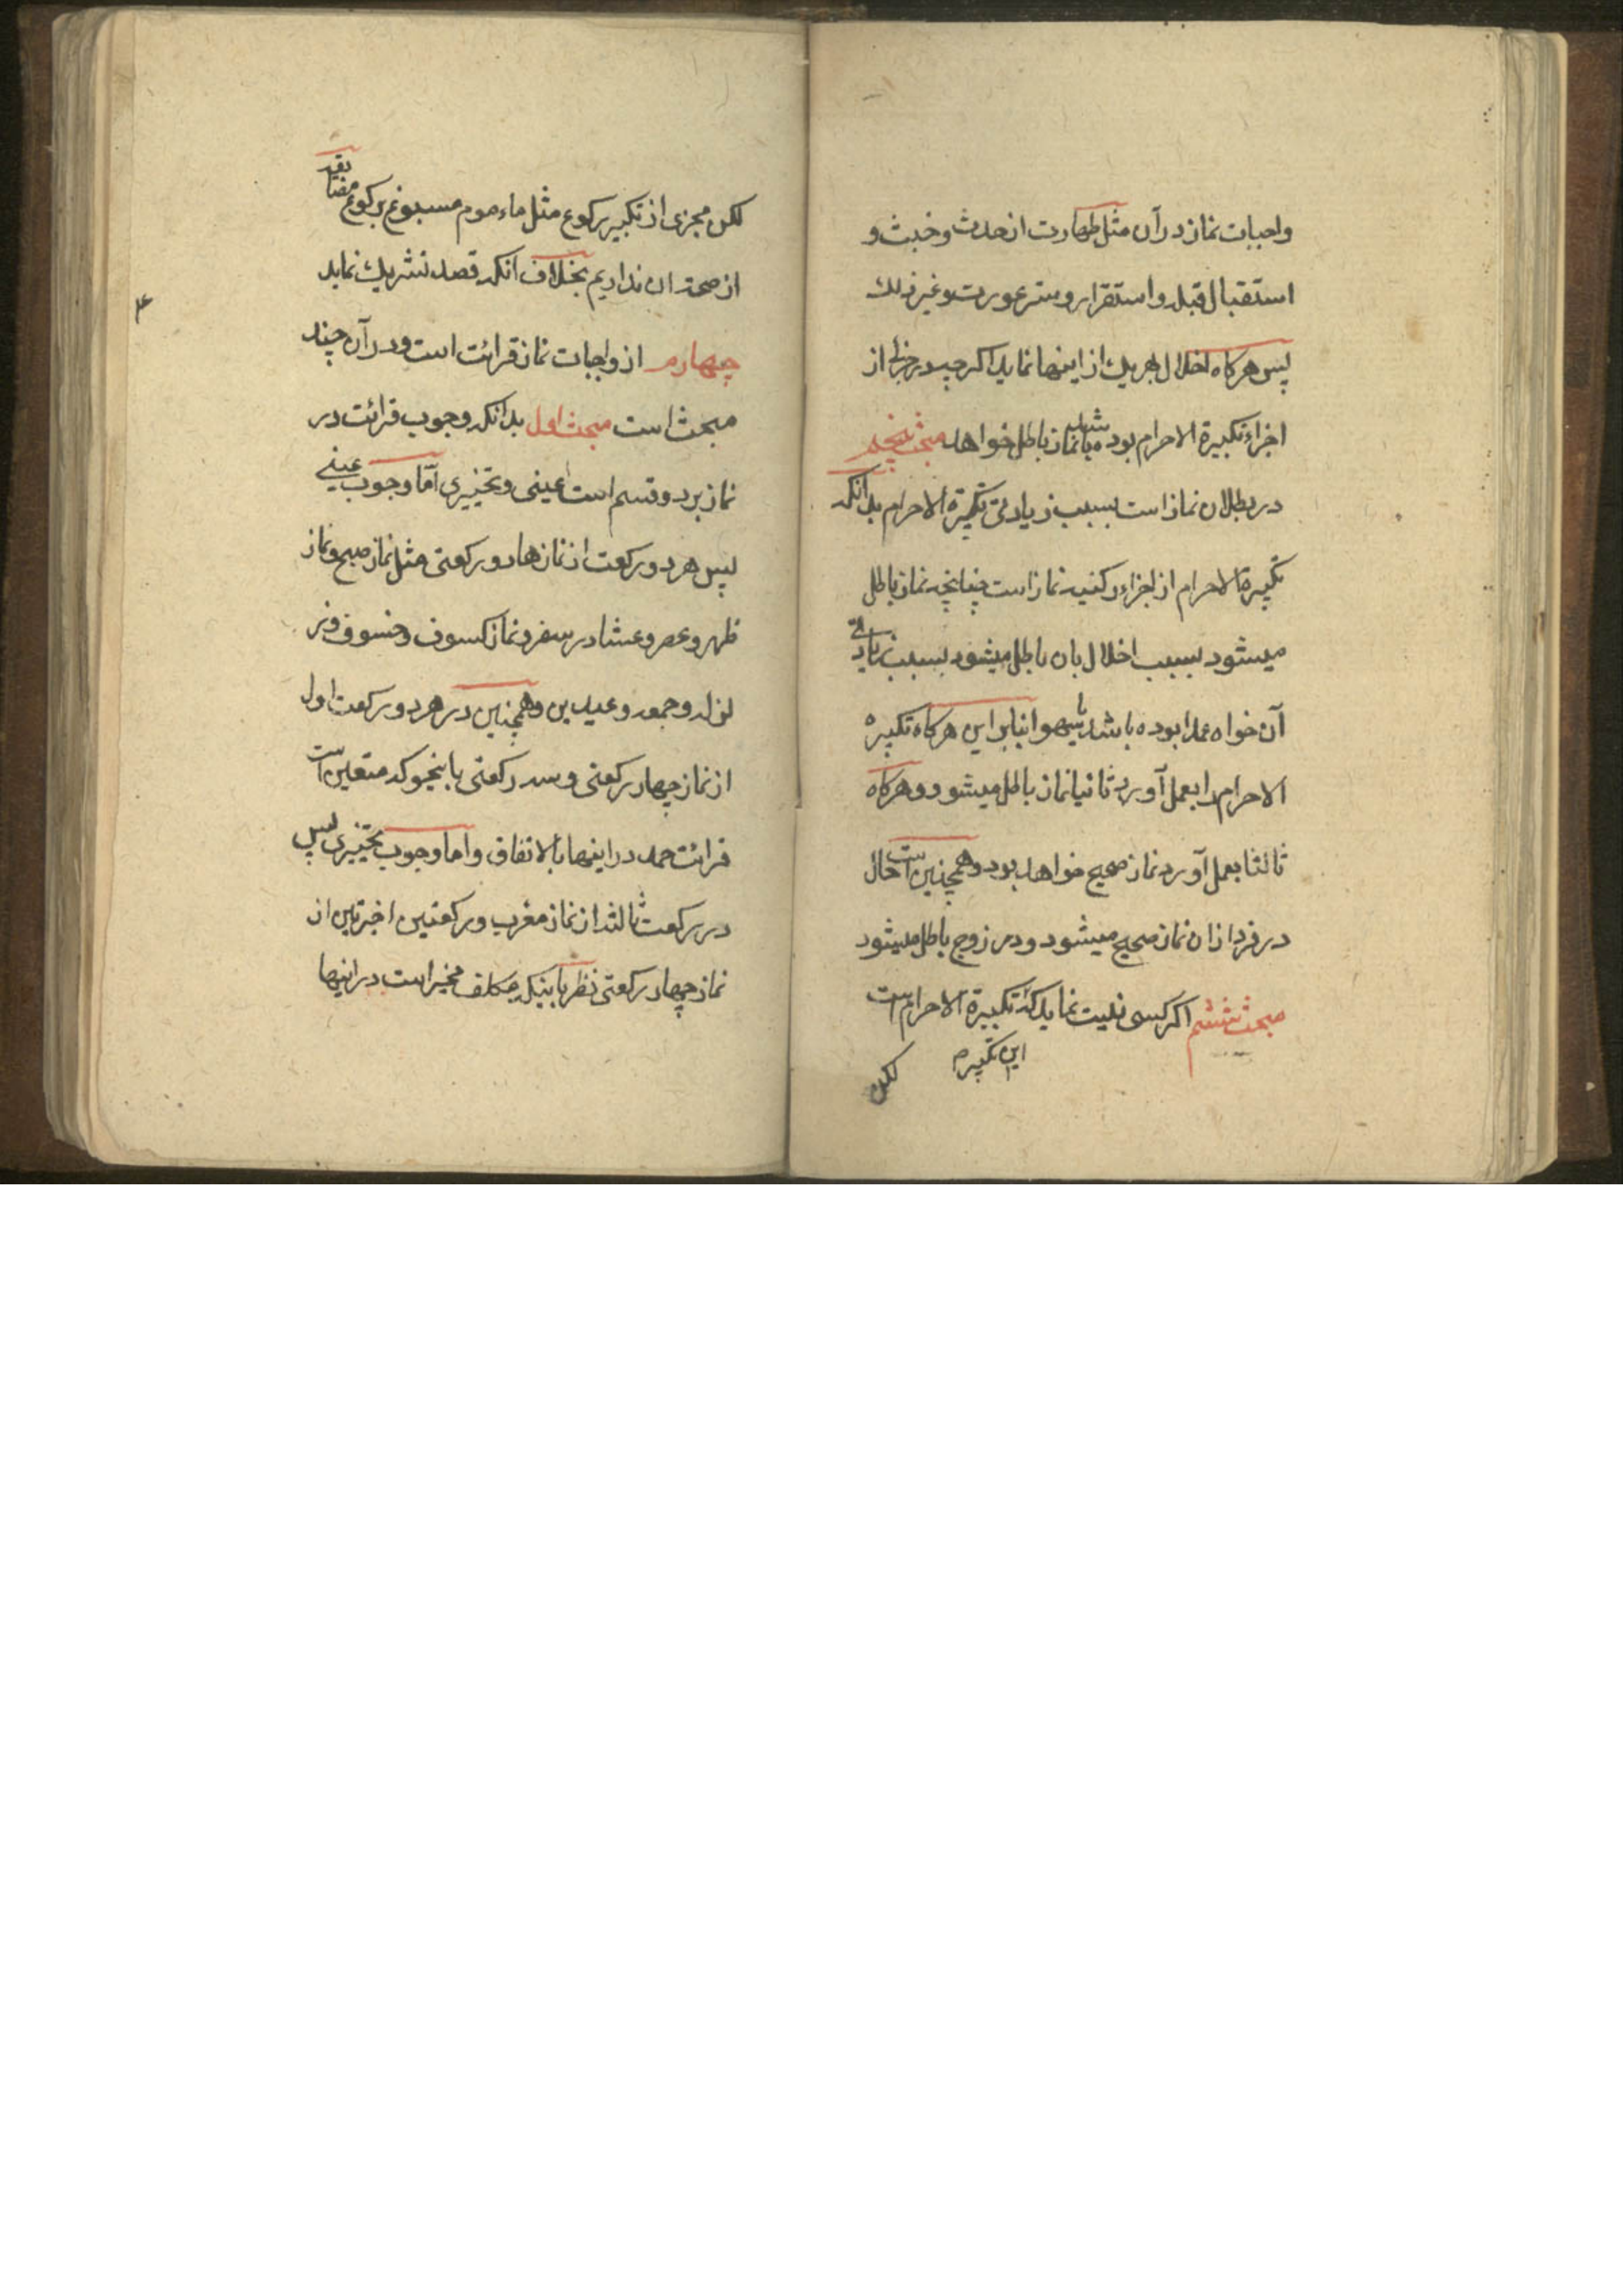 واجبات نماز در آن مثل طهارت از حدث و خبث و
استقبال قبله و استقرار و ستر عورت و غیر ذلك
پس هرکاه اخلال بهریك از اینها نماید اکرچه در جزئی از
اجزاء تکبیرة الاحرام بوده باشد نماز باطل خواهد مبحث پنجم
در بطلان نماز است بسبب زیادتی تکبیرة الاحرام بدانکه
تکبیرة الاحرام از اجزاء رکنیه نماز است چنانچه نماز باطل
میشود بسبب اخلال بان باطل میشود بسبب زیادتی
آن خواه عمدا بوده باشد یا سهوا بنابر این هرکاه تکبیره
الاحرام را بعمل آورد ثانیا نماز باطل میشود و هرکاه
ثالثا بعمل آورد نماز صحیح خواهد بود و همچنین است حال
در فرد ازان نماز صحیح میشود و در زوج باطل میشود
مبحث ششم اکر کسی نیت نماید که تکبیرة الاحرام است
این تکبیره
لکن
لکن مجزی از تکبیر رکوع مثل ماءموم مسبوغ برکوع مضایقه
از صحة ان نداریم بخلاف انکه قصد تشریك نماید
چهارم از واجبات نماز قرائت است و در آن چند
مبحث است مبحث اول بدانکه وجوب قرائت در
نماز بر دو قسم است عینی و تخییری امّا وجوب عینی
پس هر دو رکعت از نمازها دو رکعتی مثل نماز صبح و نماز
ظهر و عصر و عشا در سفر و نماز کسوف و خسوف و ز
لزله و جمعه و عیدین و همچنین در هر دو رکعت اول
از نماز چهار رکعتی و سه رکعتی باینحو که متعین است
قرائت حمد در اینها بالاتفاق و اما وجوب تخییری پس
در رکعت ثالثه از نماز مغرب و رکعتین اخیرتین از
نماز چهار رکعتی نظر باینکه مکلف مخیر است در اینها